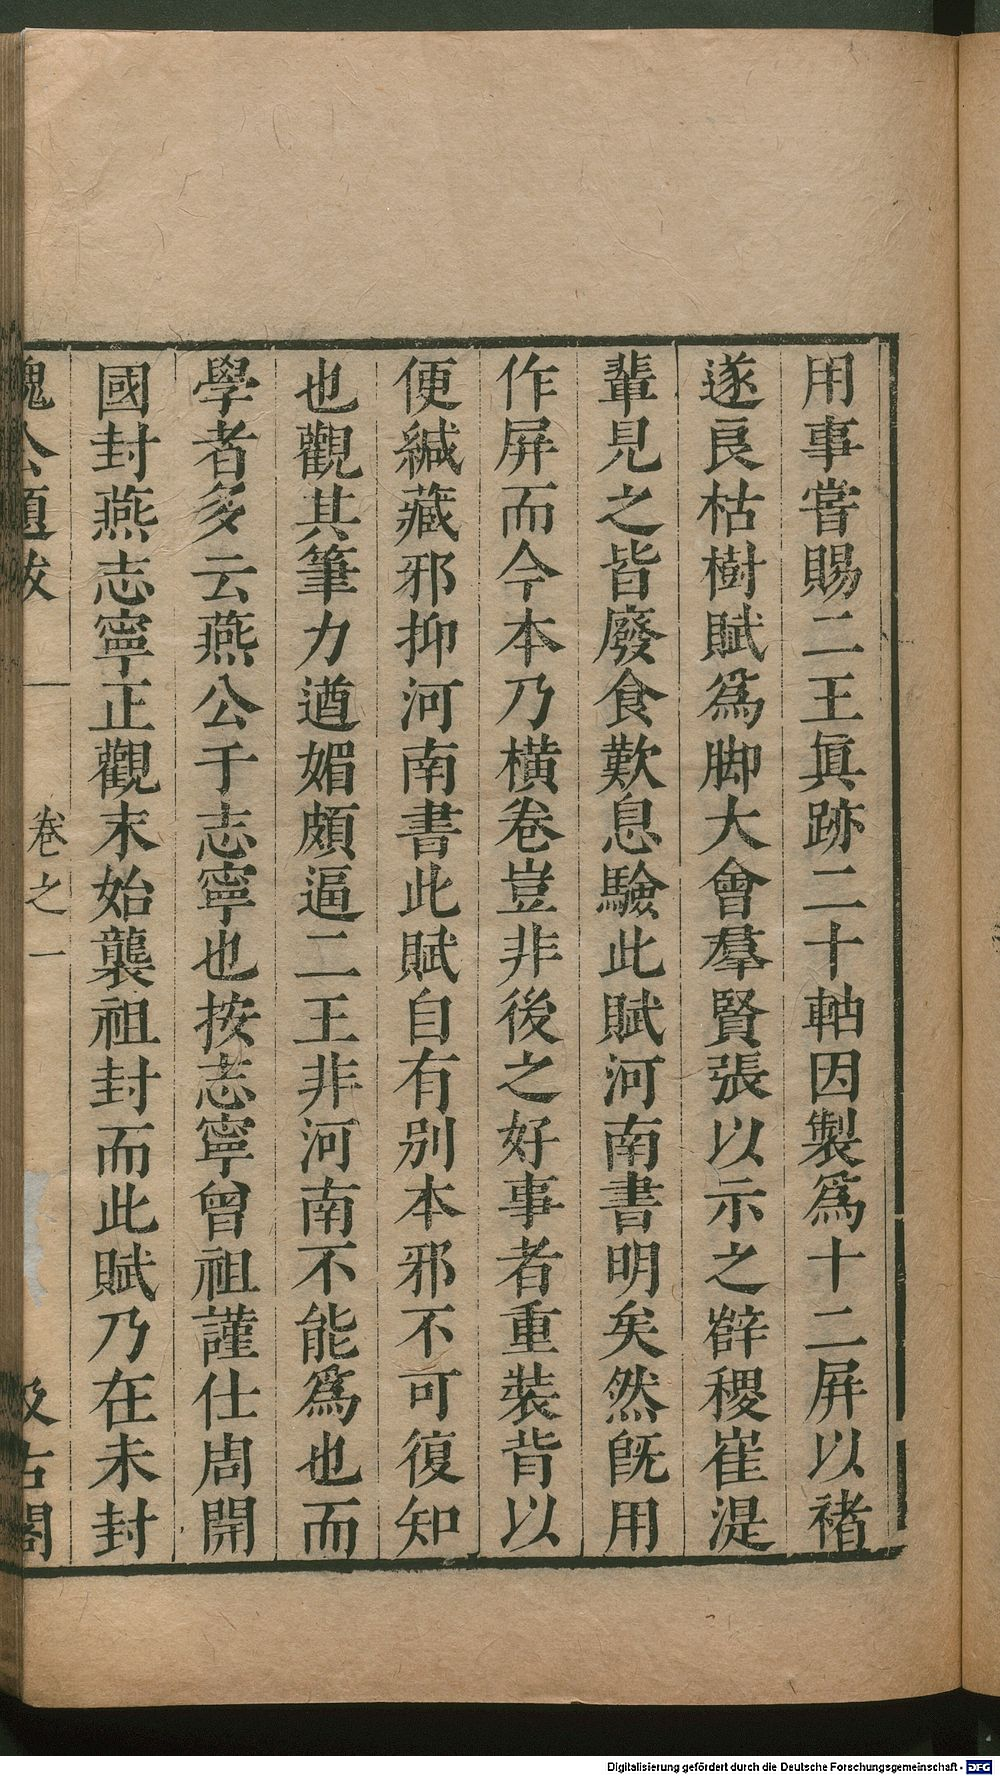 用事嘗賜二王眞跡二十軸因製爲十二屏以褚
遂良枯樹賦爲脚大會羣賢張以示之薛稷崔湜
輩見之皆廢食歎息驗此賦河南書明矣然旣用
作屏而今本乃橫卷豈非後之好事者重裝背以
便緘藏邪抑河南書此賦自有别本邪不可復知
也觀其筆力遒媚頗逼二王非河南不能爲也而
學者多云燕公于志寧也按志寧曾祖謹仕周開
國封燕志寧正觀末始襲祖封而此賦乃在未封
魏公題跋
卷之一
汲古閣
Digitalisierung gefördert durch die Deutsche Forschungsgemeinschaft - DFG